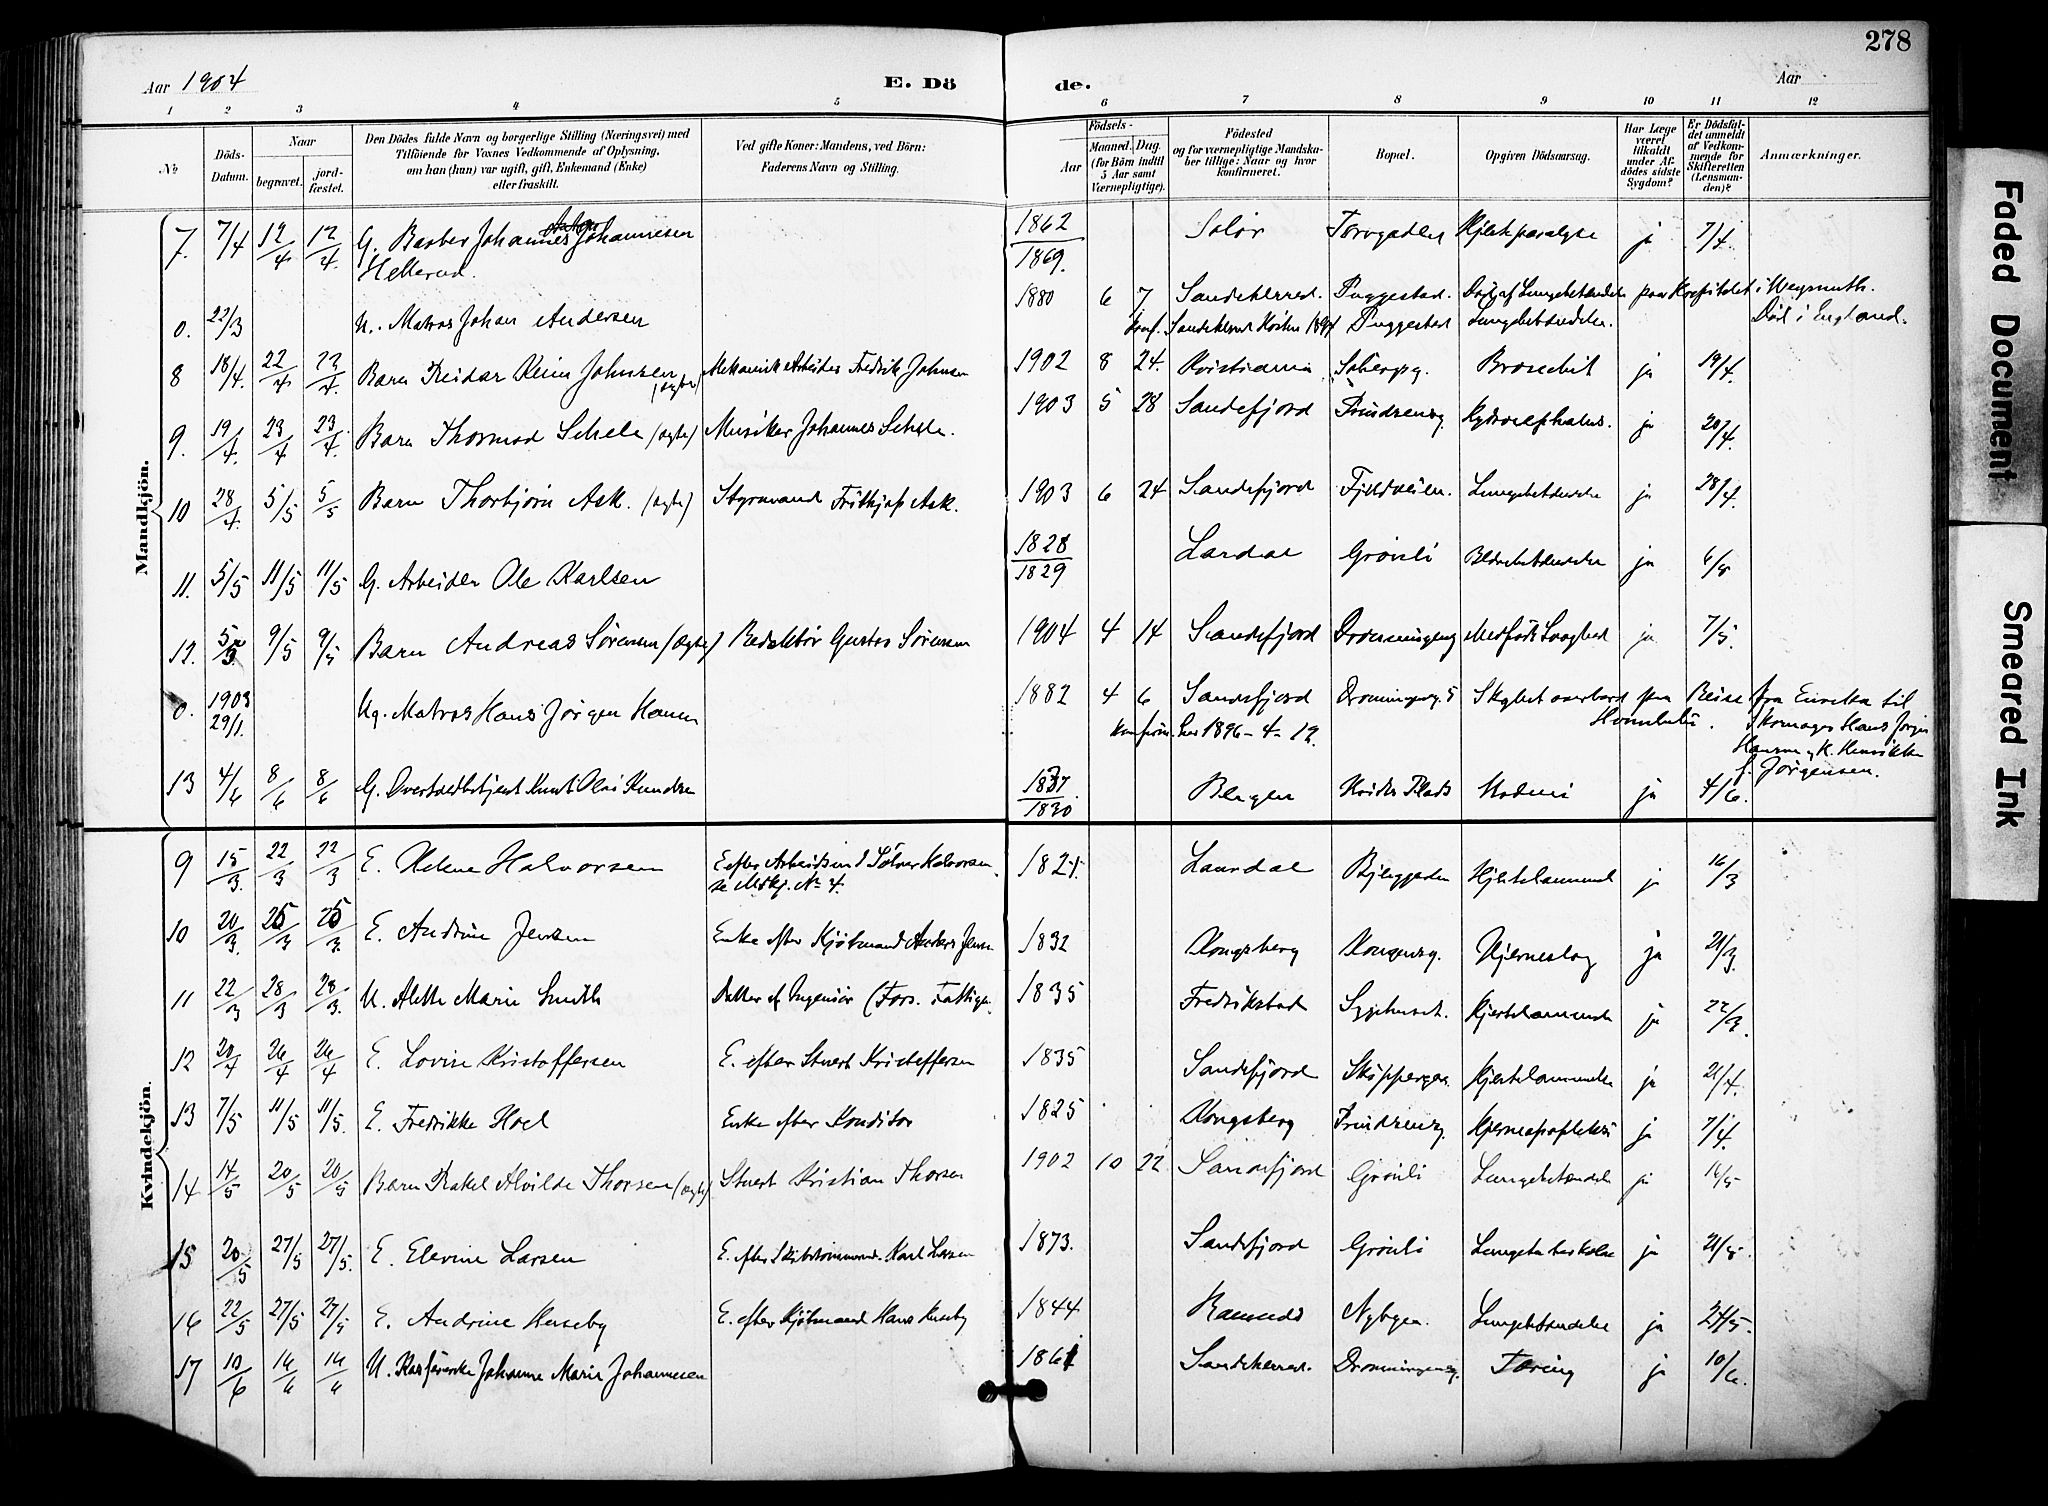 278
Aar 1904
E. Dö
de.
Aar
1 2 3 4 5 6 7 8 9 10 11 12
No
Döds-Datum.
Naar
begravet.
jord-fæstet.
Den Dödes fulde Navn og borgerlige Stilling (Næringsvei) med
Tilföiende for Voxnes Vedkommende af Oplysning,
om han (hun) var ugift, gift, Enkemand (Enke)
eller fraskilt.
Ved gifte Koner: Mandens, ved Börn:
Faderens Navn og Stilling.
Födsels-
Aar
Maaned. Dag.
(for Börn indtil
5 Aar samt
Værnepligtige).
Födested
og for værnepligtige Mandska-
ber tillige: Naar og hvor
konfirmeret.
Bopæl.
Opgiven Dödsaarsag.
Har Læge
været
tilkaldt
under Af-
dödes sidste
Sygdom?
Er Dödsfal-
det anmeldt
af Vedkom-
mende for
Skifteretten
(Lensman-
den)?
Anmærkninger.
Mandkjön.
7. 7/4 12/4 12/4. G. Barber Johannes Johannesen 1862/1869. Solør Torvgaden Hjerteparalyse ja 7/4.
Hellerud.
0. 22/3 U. Matros Johan Andersen 1880 6 7 Sandeherred. Puggestad. Død af Lungebetændelse paa Hospitalet i
konf. Sandeherred Puggestad Lungebetændelse. Død i England.
8 18/4. 22/4 22/4 Barn Reidar Johnsen (ægte) Mekanisk Arbeider Fredrik Johnsen 1902 8 24. Kristiania ja 19/4.
9. 19/4. 23/4 23/4 Barn Thormod Schele (ægte) Musiker Johannes Schele. 1903 5 28 Sandefjord Prindsensg Hydrocephalus. ja 20/4.
10 28/4. 5/5 5/5 Barn Thorbjørn Ask. (ægte) Styrmand Frithjof Ask. 1903 6 24 Sandefjord Fjeldveien. Lungebetændelse ja 28/4.
11. 5/5 11/5 11/5 G. Arbeider Ole Karlsen 1828/1829 Lardal Grønli Blærebetændelse ja 6/5
12. 5/5 9/5 9/5 Barn Andreas Sørensen (ægte) Redaktør Gustav Sørensen 1904 4 14 Sandefjord Dronningensg Medfødt Svaghed ja 7/5.
0. 1903 29/1. Ug. Matros Hans Jørgen Hansen 1882 4 6 Sandefjord Dronningensg. 5 Skyllet overbord paa Reise fra Eureka til
Konfirm. her 1896-4-12. Honolulu. Skomager Hans Jørgen
Hansen og K. Henrikke
f. Jørgensen.
13 4/6 8/6 8/6 G. Overtoldbetjent Knut Olai Knudsen 1837/1830 Bergen Hvides Plads ja 4/6.
Kvindekjön.
9 15/3. 22/3 22/3 E. Helene Halvorsen E efter Arbeidsmand Sølver Halvorsen 1821. Laurdal Bjerggaden Hjertelammelse ja 16/3
se Mdkj. No 4.
10 20/3. 25/3 25/3. E. Andrine Jensen Enke efter Kjøbmand Anders Jensen 1832 Kongsberg Kongensg. Hjerneslag ja 21/3.
11 22/3 28/3 28/3. U. Alette Marie Smith Datter af Ingeniør (Fors. Fattigv. 1835 Fredrikstad Sygehuset. Hjertelammelse ja 22/3.
12 20/4 26/4 26/4 E. Lovise Kristoffersen E. efter Stuert Kristoffersen 1835 Sandefjord Skippergad. Hjertelammelse ja 21/4.
13 7/5 11/5 11/5. E. Fredrikke Hoel Enke efter Konditor 1825 Kongsberg Prindsensg. Hjerneapoplexi ja 7/4.
14 14/5 20/5 20/5 Barn Rakel Alvilde Thorsen (ægte) Stuert Kristian Thorsen 1902 10 22 Sandefjord Grønli Lungebetændelse ja 16/5
15 20/5 27/5 27/5. E. Elevine Larsen E. efter Skibstømmermd. Karl Larsen 1873. Sandefjord Grønli Lungetuberkulose ja 21/5.
16 22/5 27/5 27/5 E. Andrine Huseby E. efter Kjøbmand Hans Huseby 1844 Ramnes Nybyen. Lungebetændelse ja 24/5.
17 10/6 14/6 14/6 U. Johanne Marie Johannesen 1861 Sandeherred. Dronningensg. Tæring ja 10/6.
Faded Document
Smeared Ink